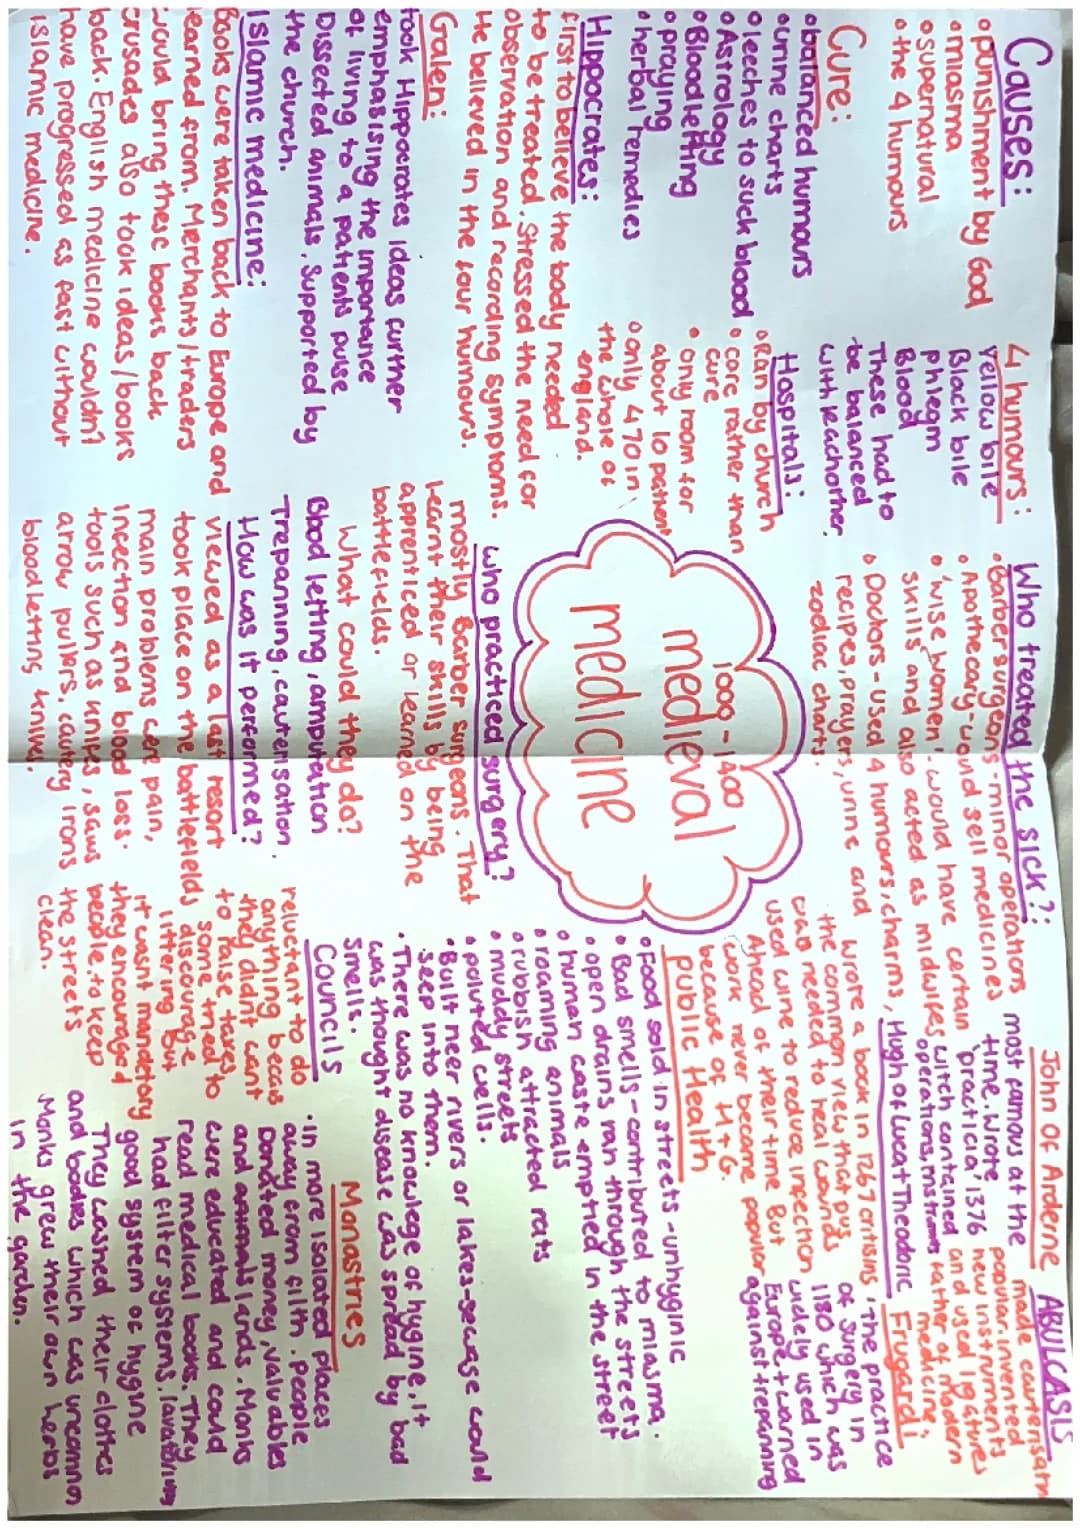 Causes:
• punishment by God
• miasma
• supernatural
• the 4 humours
Cure:
• balanced humours
• urine charts
• leeches to suck blood
• Astrology
• Bloodletting
• praying
• herbal remedies
Hippocrates:
first to believe the body needed
to be treated. Stressed the need for
observation and recording symptoms.
He believed in the four humours.
Galen:
took Hippocrates ideas further
emphasising the importance
of living to a patients pulse
Dissected animals. Supported by
the church.
Islamic medicine:
Books were taken back to Europe and
learned from. Merchants/traders
would bring these books back
crusades also took ideas/books
back. English medicine wouldn't
have progressed as fast without
islamic medicine.
4 humours:
yellow bile
Black bile
phlegm
Blood
These had to
be balanced
with eachother.
Hospitals:
• Ran by church
• care rather than
cure
• only room for
about 10 patient
• only 470 in
the whole of
england.
1000-1400
medieval
medicine
Who treated the sick?:
• Barber surgeons - minor operations
• Apothecary - would sell medicines
• 'wise women' - would have certain
skills and also acted as midwives
• Doctors - used 4 humours, charms,
recipes, prayers, urine and
zodiac charts.
who practiced surgery?
mostly Barber surgeons. That
learnt their skills by being
apprenticed or learned on the
battlefields.
What could they do?
Blood letting, amputation
Trepanning, cauterisation.
How was it performed?
viewed as a last resort
took place on the battlefields
main problems wer pain,
infection and blood loss.
tools such as knifes, saws
arrow pullers, cautery irons
bloodletting knives.
John of Arderne
most famous at the
time. Wrote
'practicia', 1376
witch contained
operations, instrumnts
ABULCASIS
made cauterisatn
popular. invented
new instruments
and used ligatures
father of modern
medicine.
Hugh of Lucca + Theodoric
wrote a book in 1267 critisins
the common view that pus
was needed to heal wounds
used wine to reduce infection
Ahead of their time But
work never became popular
because of H+G.
Frugardi:
The practice
of surgery in
1180 which was
widely used in
Europe + warned
against trepanning
public Health
• Food sold in streets - unhyginic
• Bad smells - contributed to miasma.
• open drains ran through the streets
• human waste emptied in the street
• roaming animals
• rubbish attracted rats
• muddy streets
• poluted wells.
• Built neer rivers or lakes - sewage could
seep into them.
• There was no knowlage of hygine, it
was thought disease was spread by bad
smells.
Councils
reluctant to do
anything becas
they didnt want
to raise taxes
some tried to
discourage
littering but
it wasnt mandetory
they encouraged
people to keep
the streets
clean.
Monastries
• in more isolated places
away from filth. people
Donated money, valuables
and lands. Monks
were educated and could
read medical books. They
had filter systems,
good system of hygine
They washed their clothes
and bodies which was uncommon
Monks grew their own herbs
in the garden.